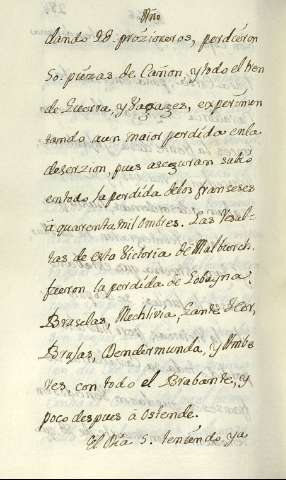 Año
dando 28. prozioneros, perdieron
50. piezas de Cañon, y todo el tren
de Guerra, y Vagages, experimen
tando aun maior perdida en la
deserzion, pues aseguran subió
en todo la perdida de los franseses
à quarenta mil ombres. Las Resul-
tas de esta Victoria de Malburch.
fueron la perdida de Lobayna,
Bruselas, Mechlivia, Gante
Brujas, Dendermunda, y Ambe
res, con todo el Brabante, y
poco despues à Ostende.
El Dia 5. teniendo ya